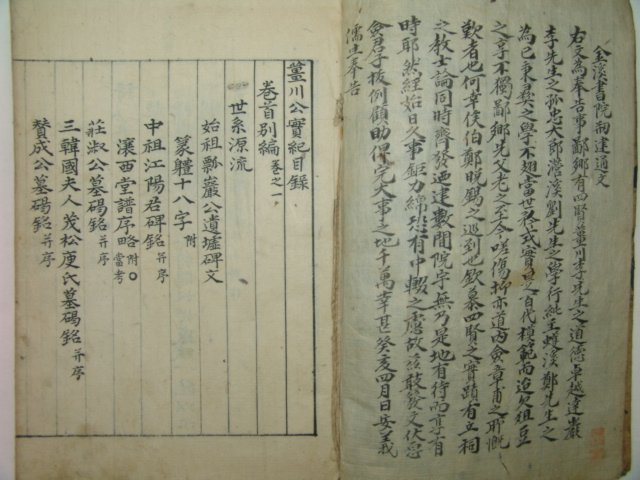 金溪書院刱建通文
右文為奉告事鄙鄉有四賢薑川李先生之道德卓越達巖
李先生之孤忠大節濳溪劉先生之學行純至蠖溪鄭先生之
為已秉彛之學不翅當世矜式實是百代模範而迨欠俎豆
之享不獨鄙鄉先父老之至今嗟傷抑亦道內僉章甫之所慨
歎者也何幸侯伯鄭晚錫之巡到也欽慕四賢之實蹟有立祠
之教士論同時齊發迺建數間院宇無乃是地有待而享有
時耶然經始日久事鉅力綿恐有中輟之慮故玆敢發文伏惟
僉君子拔例顧助俾完大事之地千萬幸甚癸亥四月日安義
儒生奉告
薑川公實紀目錄
卷首別編 卷之一
世系源流
始祖瓢巖公遺墟碑文
篆軆十八字 附
中祖江陽君碑銘 幷序
瀼西堂譜序略 附 當考
莊淑公墓碣銘 幷序
三韓國夫人茂松庾氏墓碣銘 幷序
贊成公墓碣銘 幷序